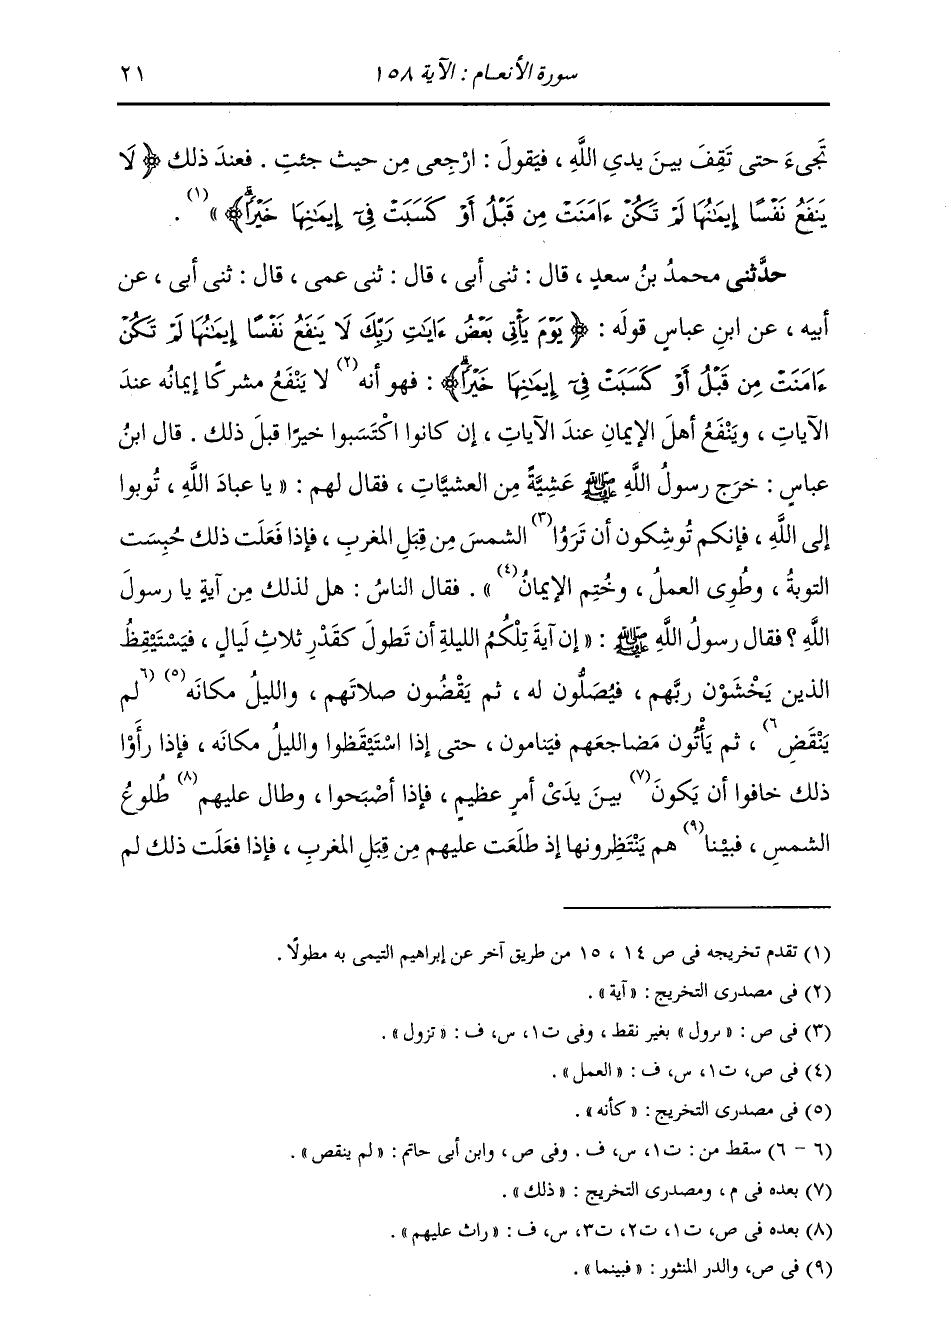 سورة الأنعام : الآية ١٥٨ ٢١
تَجىءَ حتى تَقِفَ بينَ يدىِ اللَّهِ ، فيَقولَ : ارْجِعى مِن حيث جئتِ . فعندَ ذلك ﴿ لَا
يَنفَعُ نَفْسًا إِيمَٰنُهَا لَمْ تَكُنْ ءَامَنَتْ مِن قَبْلُ أَوْ كَسَبَتْ فِىٓ إِيمَٰنِهَا خَيْرًاۗ﴾ »(١) .
حدَّثنى محمدُ بنُ سعدٍ ، قال : ثنى أبى ، قال : ثنى عمى ، قال : ثنى أبى ، عن
أبيه ، عن ابنِ عباسٍ قولَه : ﴿ يَوْمَ يَأْتِى بَعْضُ ءَايَٰتِ رَبِّكَ لَا يَنفَعُ نَفْسًا إِيمَٰنُهَا لَمْ تَكُنْ
ءَامَنَتْ مِن قَبْلُ أَوْ كَسَبَتْ فِىٓ إِيمَٰنِهَا خَيْرًاۗ﴾ : فهو أنه(٢) لا يَنْفَعُ مشركًا إيمانُه عندَ
الآياتِ ، ويَنْفَعُ أهلَ الإيمانِ عندَ الآياتِ ، إن كانوا اكْتَسَبوا خيرًا قبلَ ذلك . قال ابنُ
عباسٍ : خرَج رسولُ اللَّهِ ﷺ عَشِيَّةً مِن العشيَّاتِ ، فقال لهم : « يا عبادَ اللَّهِ ، تُوبوا
إلى اللَّهِ ، فإنكم تُوشِكون أن تَرَوُا(٣) الشمسَ مِن قِبَلِ المغربِ ، فإذا فعَلَت ذلك حُبِسَت
التوبةُ ، وطُوِى العملُ ، وخُتِم الإيمانُ(٤) » . فقال الناسُ : هل لذلك مِن آيةٍ يا رسولَ
اللَّهِ ؟ فقال رسولُ اللَّهِ ﷺ : « إن آيةَ تِلْكُمُ الليلةِ أن تَطولَ كقَدْرِ ثلاثِ لَيالٍ ، فيَسْتَيْقِظُ
الذين يَخْشَوْن ربَّهم ، فيُصَلُّون له ، ثم يَقْضُون صلاتَهم ، والليلُ مكانَه(٥) (٦لم
يَنْقَضِ٦) ، ثم يَأْتُون مَضاجعَهم فيَنامون ، حتى إذا اسْتَيْقَظوا والليلُ مكانَه ، فإذا رأَوْا
ذلك خافوا أن يَكونَ(٧) بينَ يدَىْ أمرٍ عظيمٍ ، فإذا أصْبَحوا ، وطال عليهم(٨) طُلوعُ
الشمسِ ، فبيْنا(٩) هم يَنْتَظِرونها إذ طلَعَت عليهم مِن قِبَلِ المغربِ ، فإذا فعَلَت ذلك لم
(١) تقدم تخريجه فى ص ١٤ ، ١٥ من طريق آخر عن إبراهيم التيمى به مطولًا .
(٢) فى مصدرى التخريج : « آية » .
(٣) فى ص : « ىرول » بغير نقط ، وفى ت١، س، ف : « تزول » .
(٤) فى ص، ت١، س، ف : « العمل » .
(٥) فى مصدرى التخريج : « كأنه » .
(٦ - ٦) سقط من : ت١، س، ف . وفى ص ، وابن أبى حاتم : « لم ينقص » .
(٧) بعده فى م ، ومصدرى التخريج : « ذلك » .
(٨) بعده فى ص، ت١، ت٢، ت٣، س، ف : « راث عليهم » .
(٩) فى ص، والدر المنثور : « فبينما » .